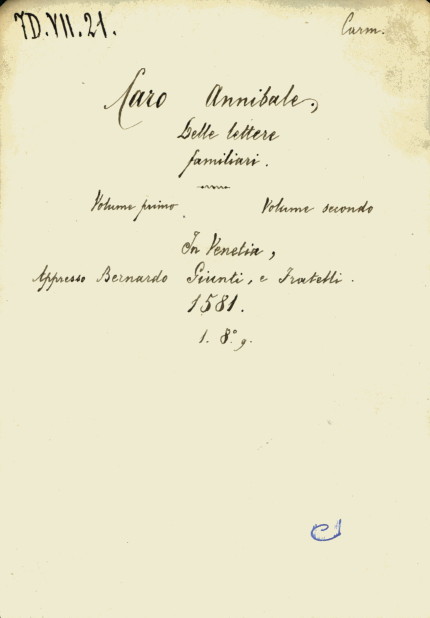 7D.VII.21. Carm.
Caro Annibale,
Delle lettere
familiari.
Volume primo Volume secondo
In Venetia,
Appresso Bernardo Giunti, e Fratelli.
1581.
1. 8.° g.